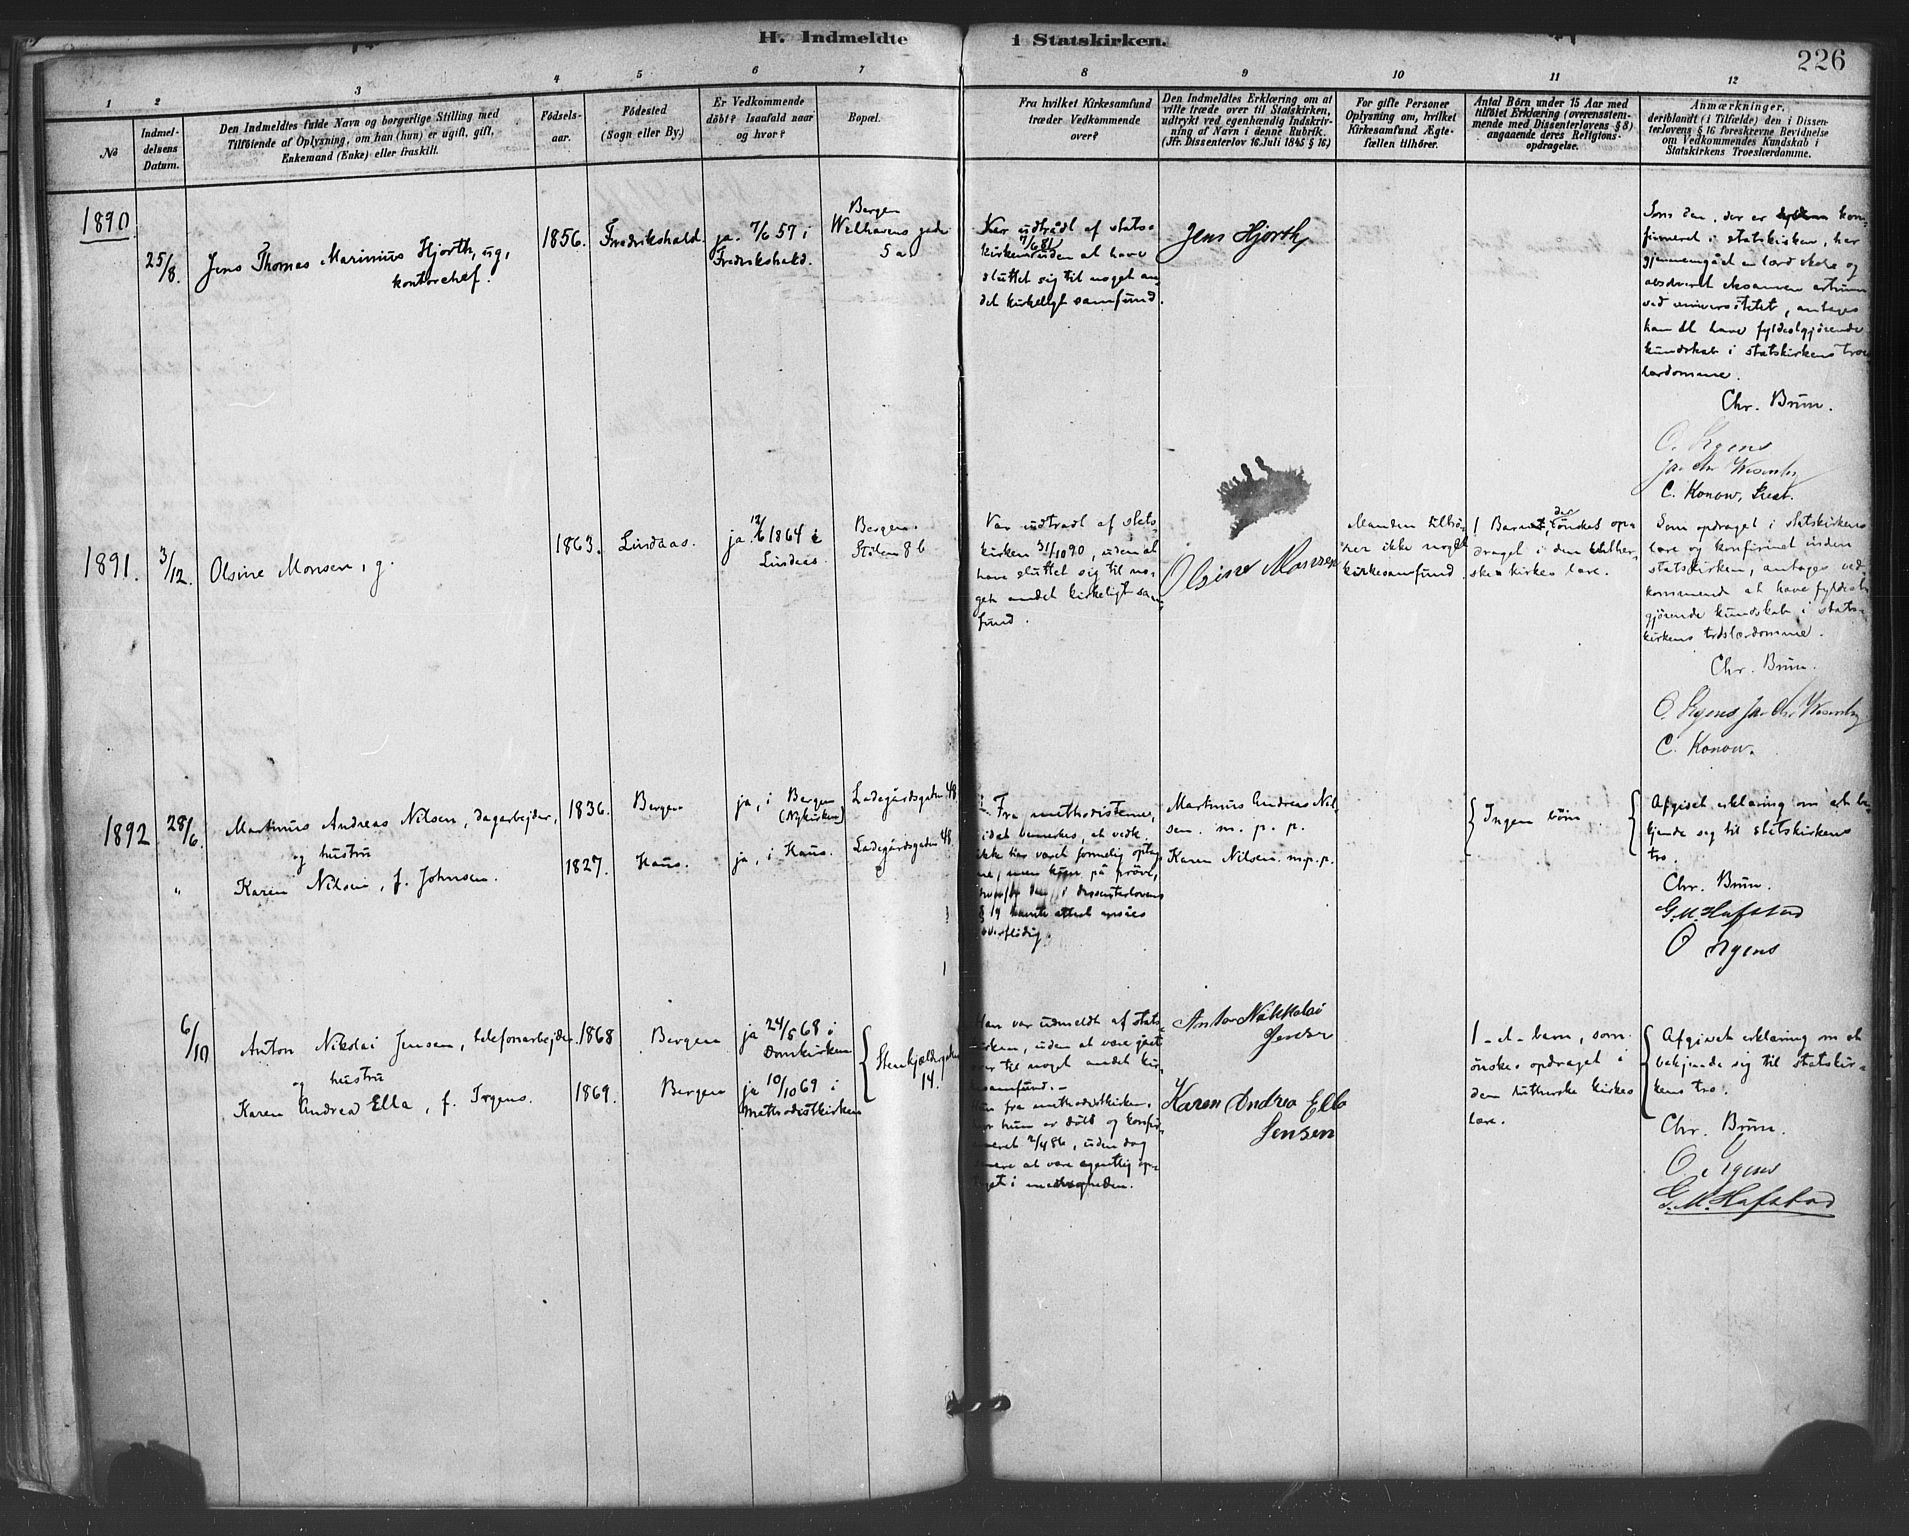 H. Indmeldte i Statskirken.
226
1 2 3 4 5 6 7 8 9 10 11 12
No
Indmel-
delsens
Datum.
Den Indmeldtes fulde Navn og borgerlige Stilling med
Tilföiende af Oplysning, om han (hun) er ugift, gift,
Enkemand (Enke) eller fraskilt.
Födsels-
aar.
Födested
(Sogn eller By).
Er Vedkommende
döbt? Isaafald naar
og hvor?
Bopæl.
Fra hvilket Kirkesamfund
træder Vedkommende
over?
Den Indmeldtes Erklæring om at
ville træde over til Statskirken,
udtrykt ved egenhændig Indskriv-
ning af Navn i denne Rubrik.
(Jfr. Dissenterlov 16 Juli 1845 § 16.)
For gifte Personer
Oplysning om, hvilket
Kirkesamfund Ægte-
fællen tilhörer.
Antal Börn under 15 Aar med
tilföiet Erklæring (overensstem-
mende med Dissenterlovens § 8)
angaaende deres Religions-
opdragelse.
Anmærkninger,
deriblandt (i Tilfælde) den i Dissen-
terlovens § 16 foreskrevne Bevidnelse
om Vedkommendes Kundskab i
Statskirkens Troeslærdomme.
1890
25/8.
Jens Thomas Marinius Hjorth, ug,
kontorchef.
1856.
Fredrikshald.
ja. 7/6 57 i
Fredrikshald.
Bergen
Welhavens gade
5 a
Her udtrådt af stats-
kirken 7/6 81 uden at have
sluttet sig til noget an-
det kirkeligt samfund.
Jens Hjorth
Som den, der er kon-
firmeret i statskirken, har
gjennemgået en lærd skole og
absolveret eksamen artium
ved universitetet, antages
han at have fyldestgjørende
kundskab i statskirkens troes
lærdomme.
Chr. Brun.
O. Irgens
C. Konow.
1891.
3/12.
Olsine Monsen, g.
1863.
Lindaas.
ja 12/6 1864 i
Lindaas.
Bergen.
Stølen 8 b
Var udtrådt af stats-
kirken 31/10 90, uden at
have sluttet sig til no-
get andet kirkeligt sam
fund.
Olsine Monsen
Manden tilhø-
rer ikke noget
kirkesamfund.
1 Barn, der ønskes op-
draget i den luther-
ske kirkes lære.
Som opdraget i statskirkens
lære og konfirmet inden
statskirken, antages ved-
kommende at have fyldest-
gjørende kundskab i stats-
kirkens troslærdomme.
Chr. Brun.
O. Irgens
C. Konow.
1892
28/6.
Martinus Andreas Nilsen, dagarbejder,
og hustru
" Karen Nilsen, f. Johnsen.
1836.
1827.
Bergen
Haus.
ja, i Bergen
(Nykirken)
ja, i Haus.
Ladegårdsgaden 48.
Ladegårdsgaden 48.
Fra methodisterne,
idet bemerkes, at vedk.
ikke har været formelig optag-
ne, men kun på prøve,
hvorfor den i dissenterlovens
§ 14 nævnte attest ansåes
overflødig.
Martinus Andreas Nil-
sen. m. p. p.
Karen Nilsen. m.p.p.
Ingen börn.
Afgivet erklæring om at be-
kjende sig til statskirkens
tro.
Chr. Brun.
G. M. Hafstad
O Irgens
6/10
Anton Nikolai Jensen, telefonarbejder
og hustru
Karen Andrea Ella, f. Irgens.
1868
1869.
Bergen
Bergen
ja 24/5 68 i
Domkirken
ja 10/10 69 i
Methodistkirken
Stenkjældergaden
14.
Han var udmeldt af stats-
kirken, uden at være gået
over til noget andet kir-
kesamfund. -
Hun fra methodistkirken,
hvor hun er døbt og konfir-
meret 2/4 86, uden dog
senere at være egentlig op-
taget i menigheden.
Anton Nikkolai
Jensen
Karen Andrea Ella
Jensen
1 - et - barn, som
ønskes opdraget i
den lutherske kirkes
lære.
Afgivet erklæring om at
bekjende sig til statskir-
kens tro.
Chr. Brun.
O. Irgens
G. M. Hafstad